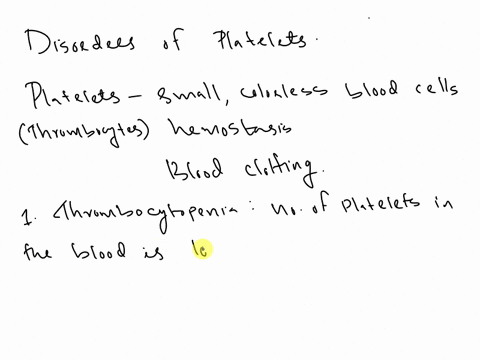 Disorders of Platelets.
Platelets - small, colorless blood cells
(Thrombocytes) hemostasis
Blood clotting.
1. Thrombocytopenia: no. of platelets in
the blood is